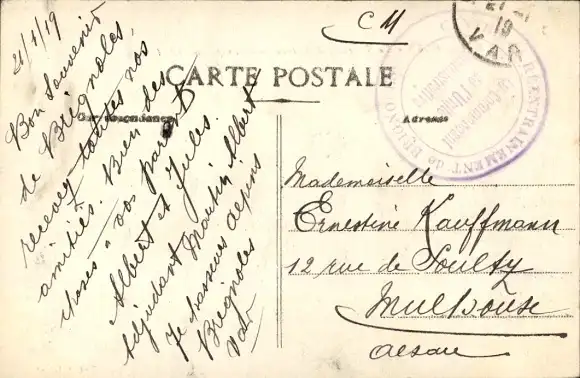 CM
21-1
19
VAR
CARTE POSTALE
Correspondance
Adresse
RÉENTRAINEMENT de BRIGNO
Le Commandant
de l'Unité
21/1/19
Bon Souvenir
de Brignoles,
recevez toutes nos
amitiés. Bien des
choses a vos parents
Albert et Jules.
Adjudant Martin Albert
7e chasseurs alpins
Brignoles
Var
Mademoiselle
Ernestine Kauffmann
12 rue de Soultz
Mulhouse
Alsace